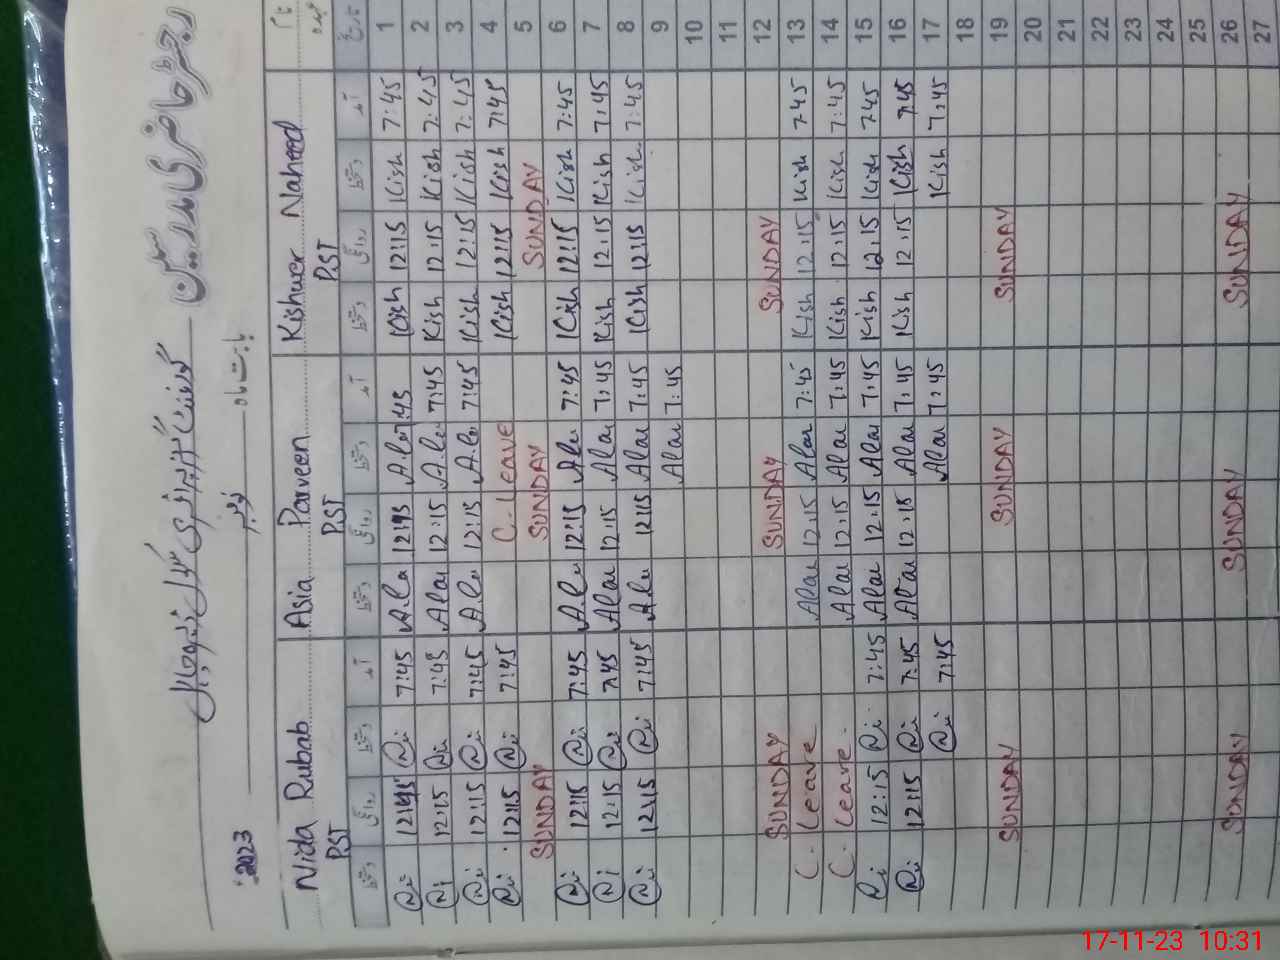 رجسٹر حاضری مدرسین
گورنمنٹ گرلز پرائمری سکول
بابت ماہ نومبر 2023
نام Kishwer Naheed Asia Parveen Nida Rubab
عہدہ PST PST PST
تاریخ آمد دستخط روانگی دستخط آمد دستخط روانگی دستخط آمد دستخط روانگی دستخط
1 7:45 Kish 12:15 Kish 7:45 12:45 7:45 12:45
2 7:45 Kish 12:15 Kish 7:45 12:15 7:45 12:15
3 7:45 Kish 12:15 Kish 7:45 12:15 7:45 12:15
4 7:45 Kish 12:15 Kish C. Leave 7:45 12:15
5 SUNDAY SUNDAY SUNDAY
6 7:45 Kish 12:15 Kish 7:45 12:15 7:45 12:15
7 7:45 Kish 12:15 Kish 7:45 12:15 7:45 12:15
8 7:45 Kish 12:15 Kish 7:45 12:15 7:45 12:15
9 7:45
10
11
12 SUNDAY SUNDAY SUNDAY
13 7:45 Kish 12:15 Kish 7:45 12:15 C. Leave
14 7:45 Kish 12:15 Kish 7:45 12:15 C. Leave
15 7:45 Kish 12:15 Kish 7:45 12:15 7:45 12:15
16 7:45 Kish 12:15 Kish 7:45 12:15 7:45 12:15
17 7:45 Kish 7:45 7:45
18
19 SUNDAY SUNDAY SUNDAY
20
21
22
23
24
25
26 SUNDAY SUNDAY SUNDAY
27
17-11-23 10:31